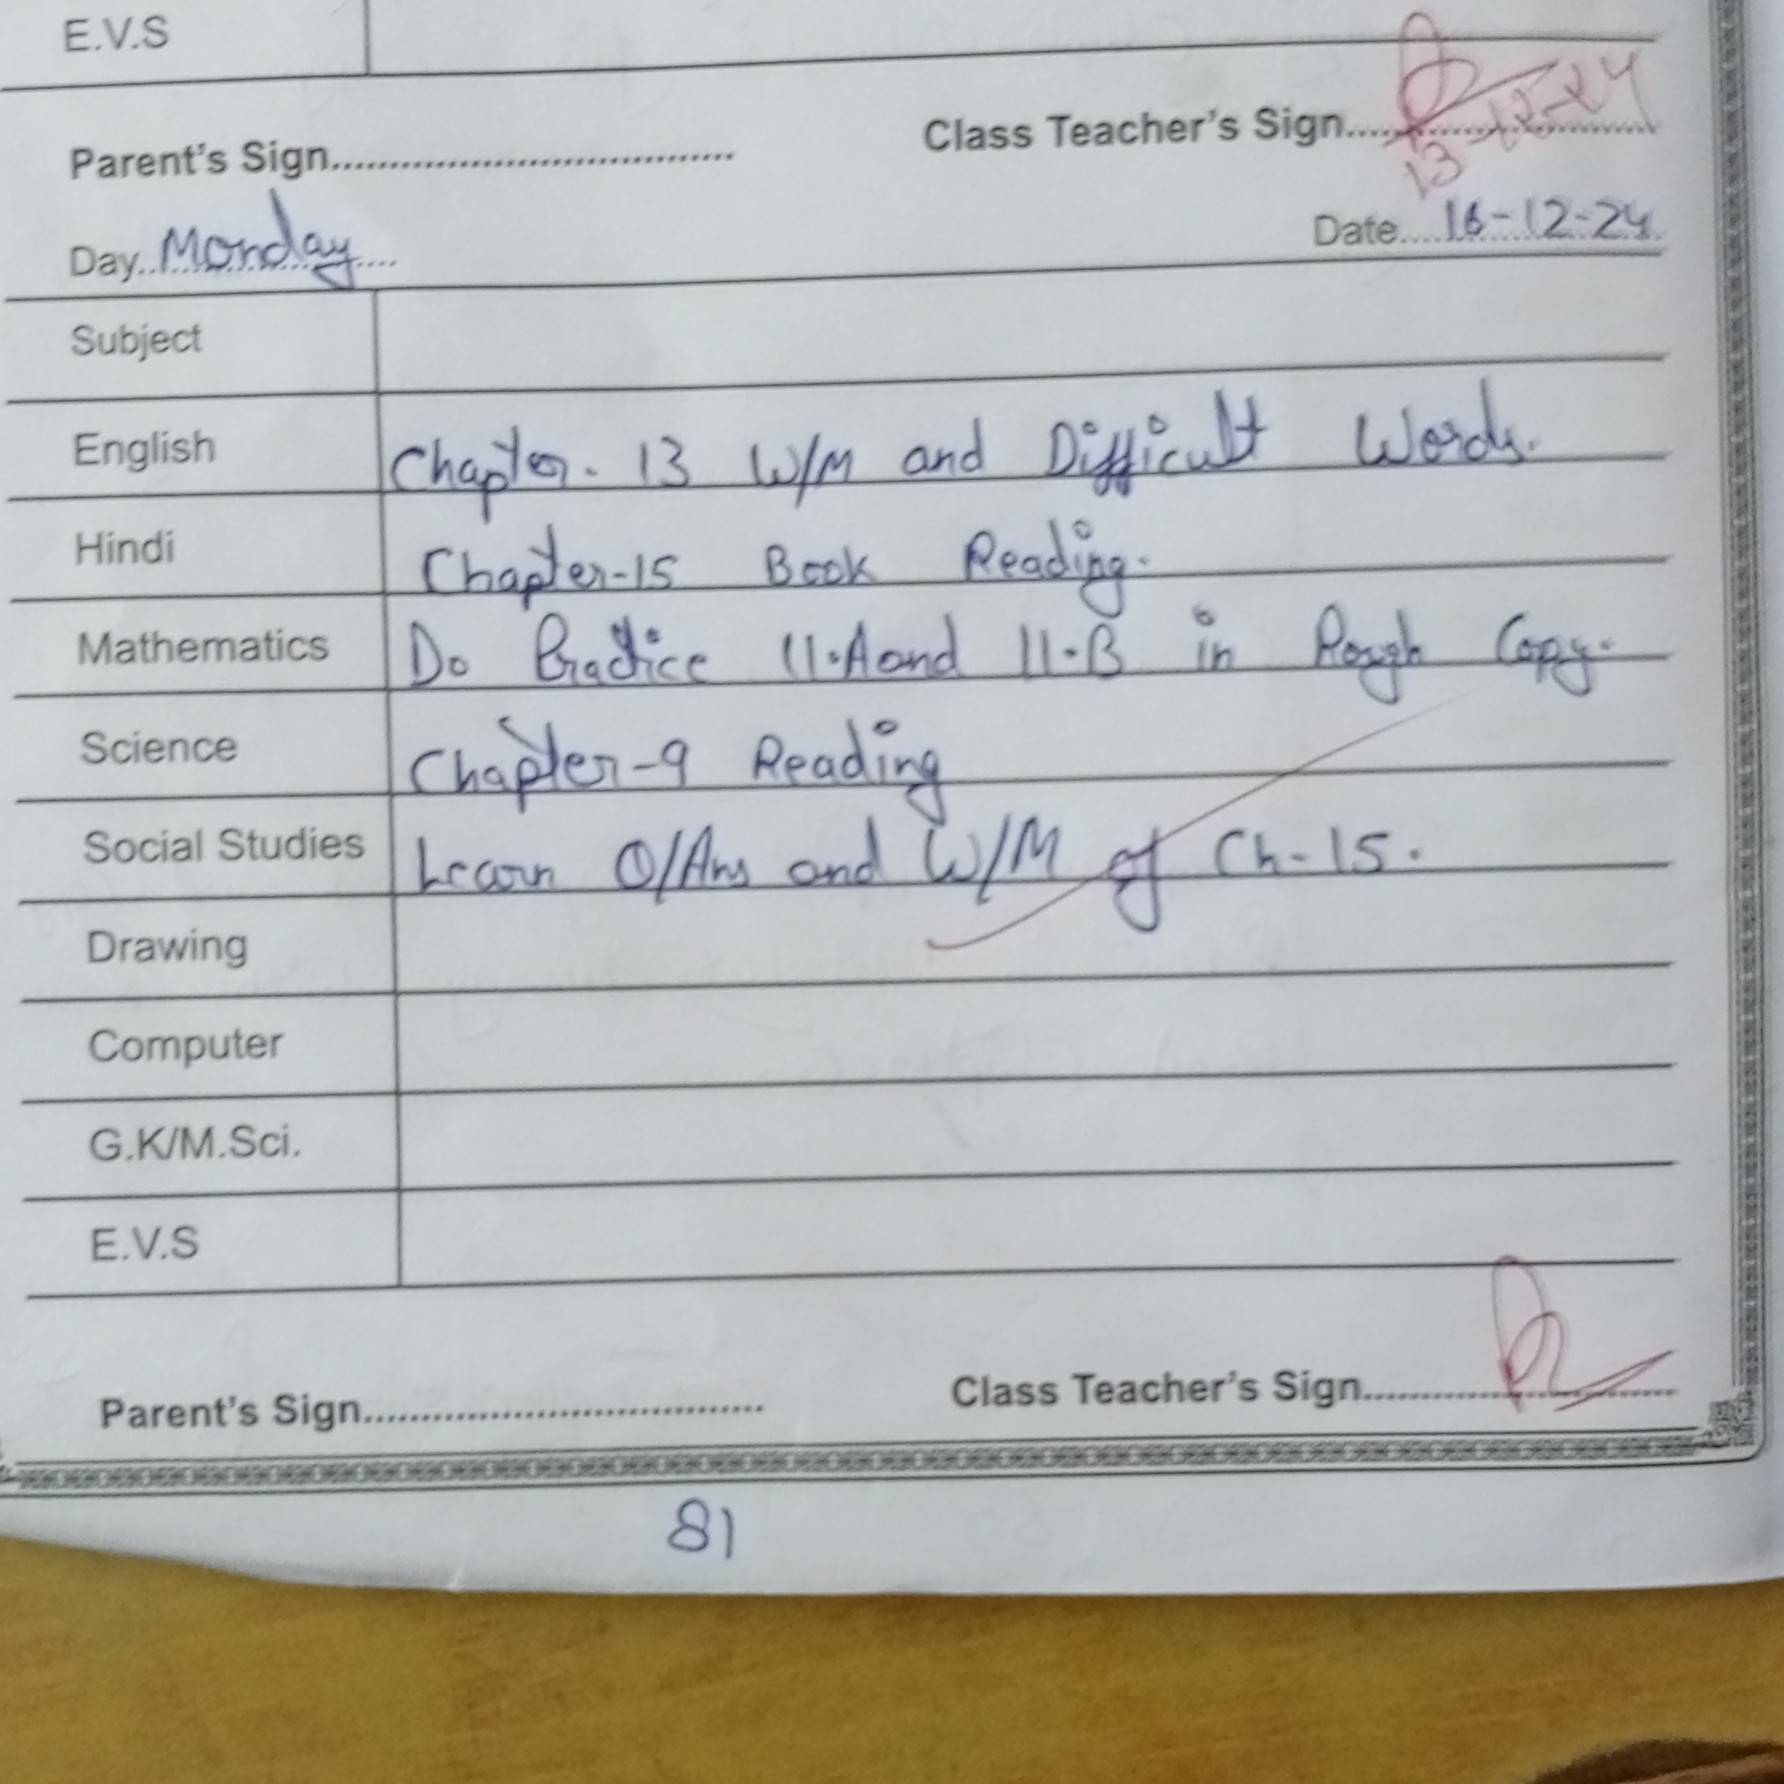 E.V.S
Parent's Sign.................................... Class Teacher's Sign............................
13-12-24
Day..Monday.... Date....16-12-24.
Subject
English Chapter-13 W/M and Difficult Words.
Hindi Chapter-15 Book Reading.
Mathematics Do Practice 11.A and 11.B in Rough Copy.
Science Chapter-9 Reading
Social Studies Learn Q/Ans and W/M of Ch-15.
Drawing
Computer
G.K/M.Sci.
E.V.S
Parent's Sign.................................... Class Teacher's Sign............................
81